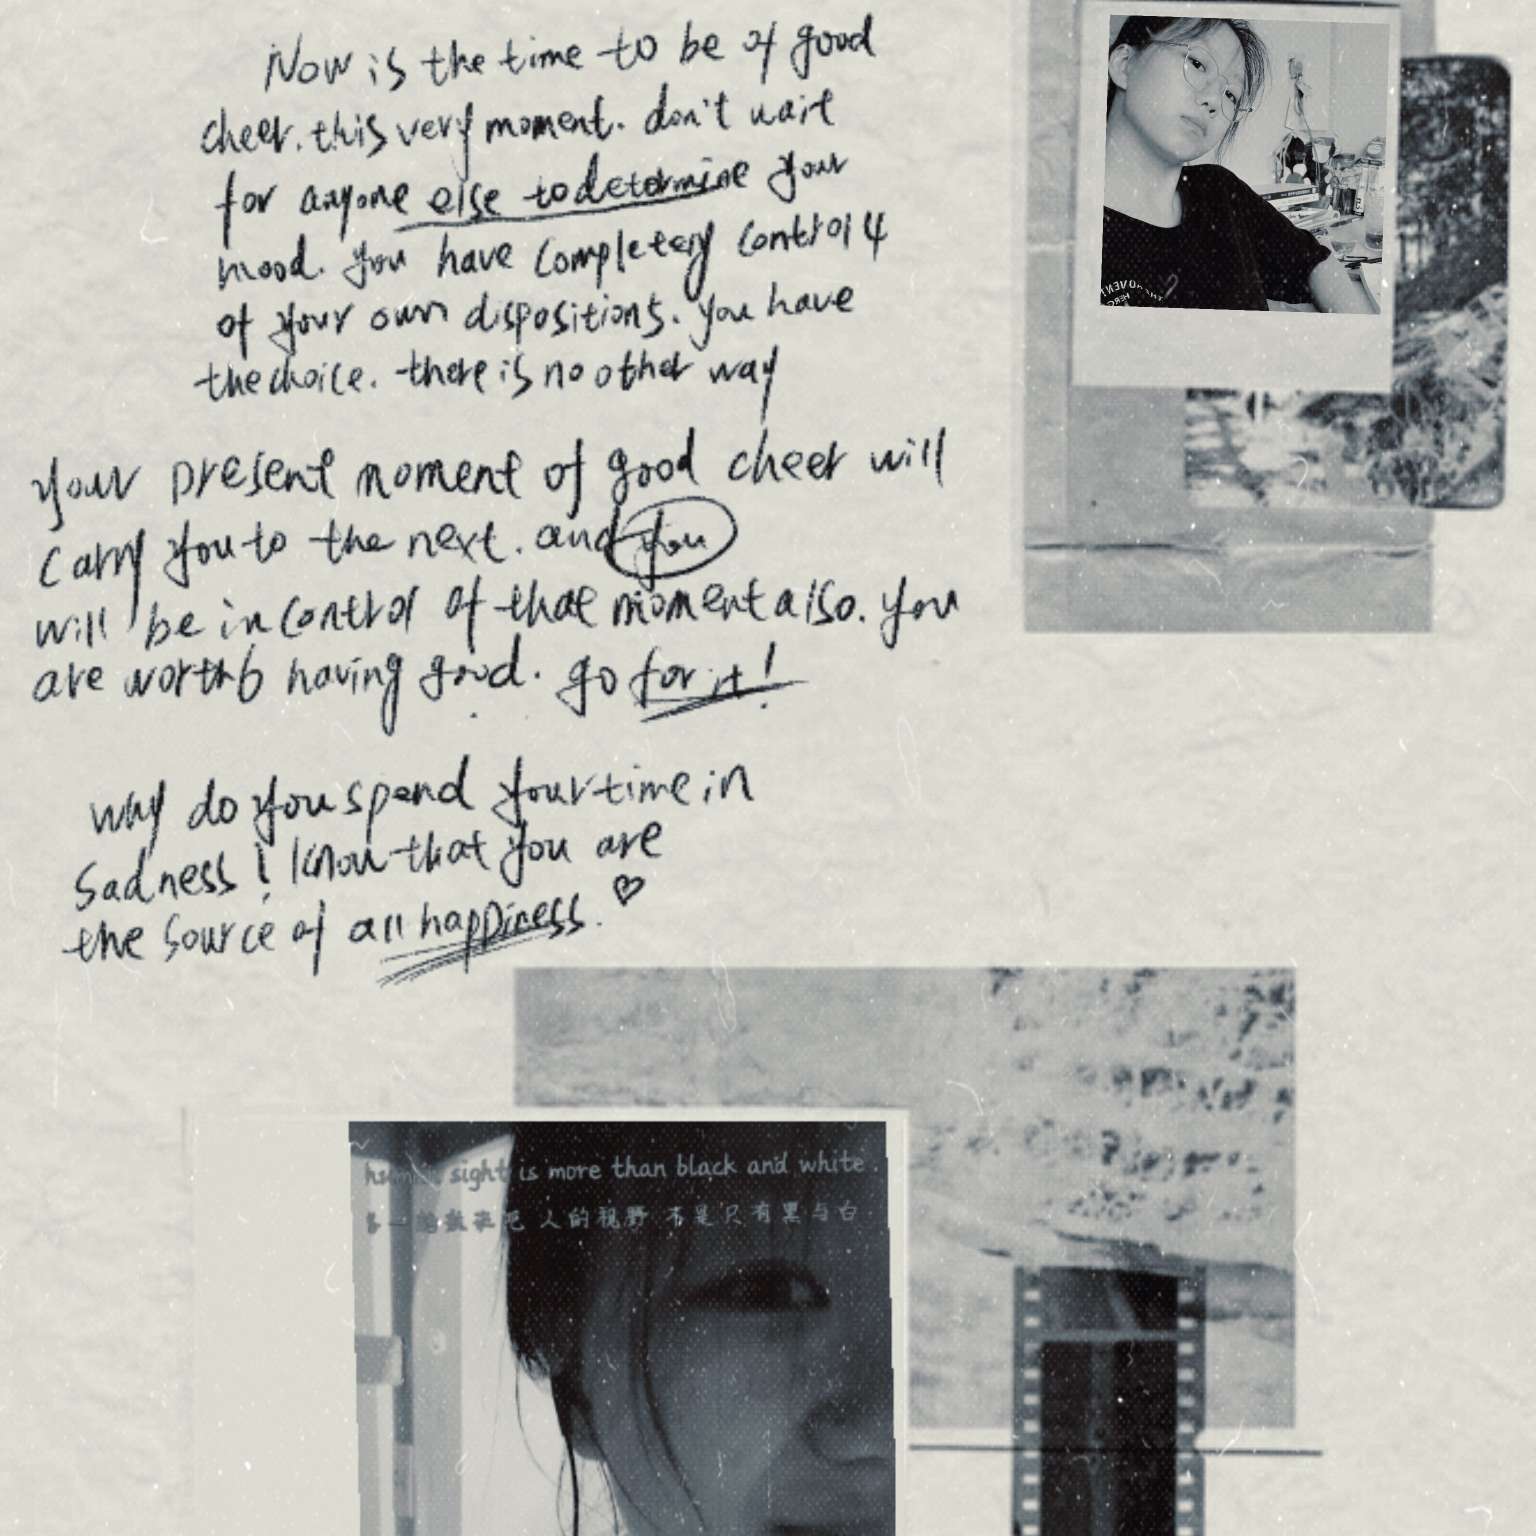 Now is the time to be of good
cheer. this very moment. don't wait
for anyone else to determine your
mood. you have completely control 4
of your own dispositions. you have
the choice. there is no other way
your present moment of good cheer will
carry you to the next. and you
will be in control of that moment also. you
are worth6 having good. go for it!
why do you spend your time in
sadness! know that you are
the source of all happiness. ♡
human sight is more than black and white.
人的视野 不是只有黑与白